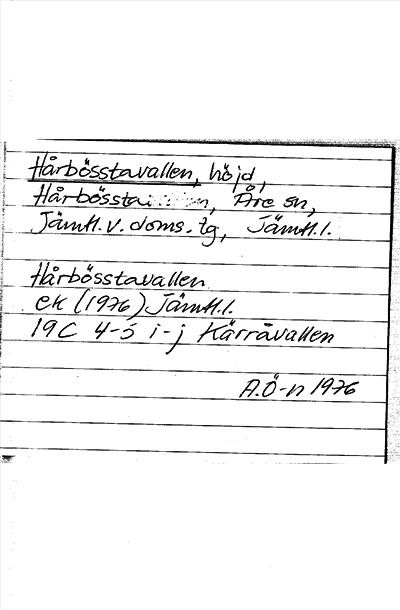 Hårbösstavallen, höjd,
Åre sn,
Jämtl. v. doms. tg, Jämtl. l.
Hårbösstavallen
ek (1976) Jämtl. l.
19C 4-5 i-j Kärråvallen
A.Ö-n 1976